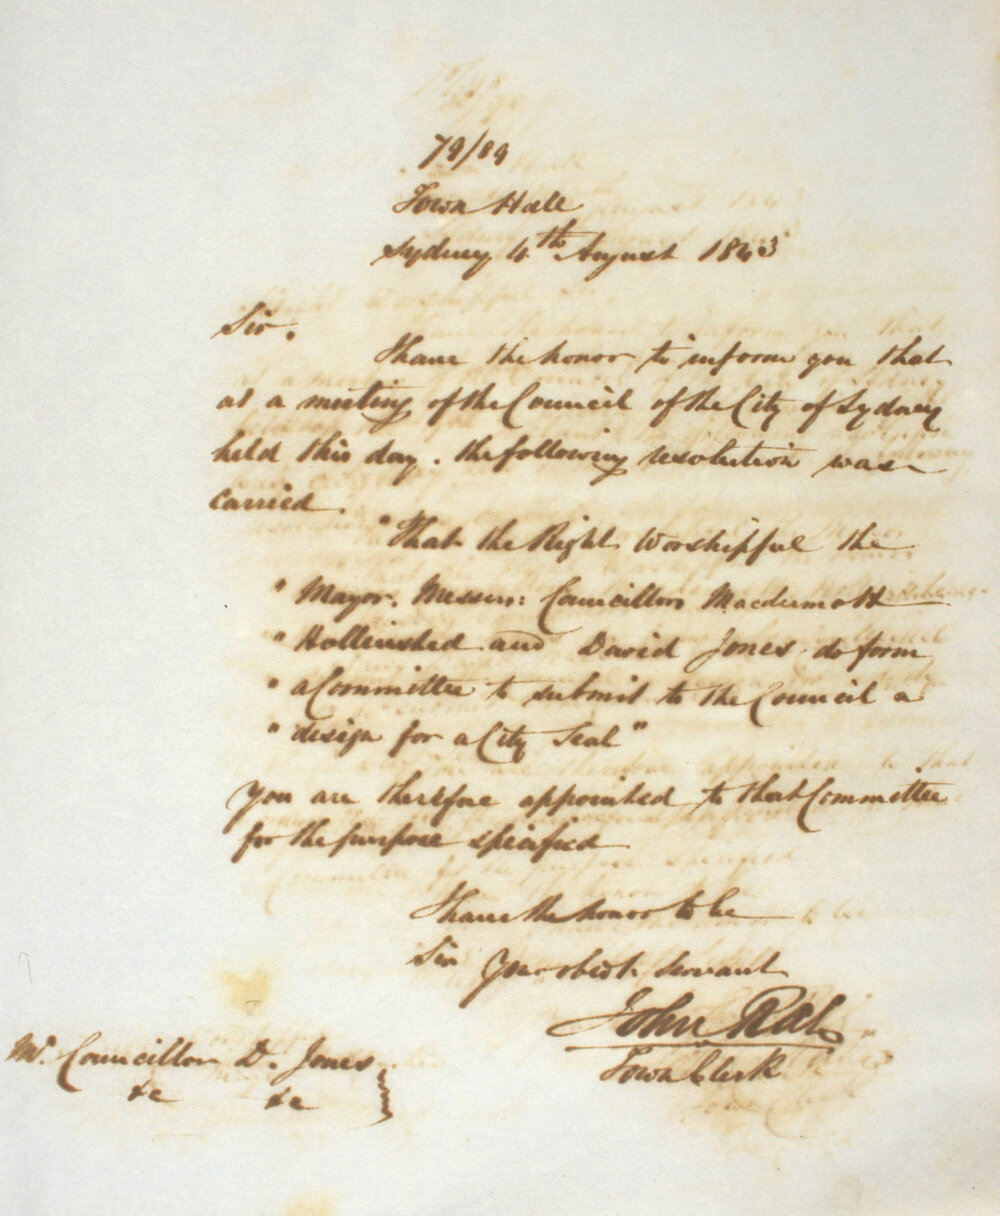 79/89
Town Hall
Sydney 4th August 1843
Sir.
I have the honor to inform you that
at a meeting of the Council of the City of Sydney
held this day. the following resolution was
carried.
"That the Right Worshipful the
" Mayor. Messrs: Councillors Macdermott
" Hollinshed and David Jones do form
" a Committee to submit to the Council a
" design for a City Seal"
You are therefore appointed to that Committee
for the purpose specified
I have the honor to be
Sir Your obedt. Servant
John Rae
Town Clerk
Mr. Councillor D. Jones
&c &c